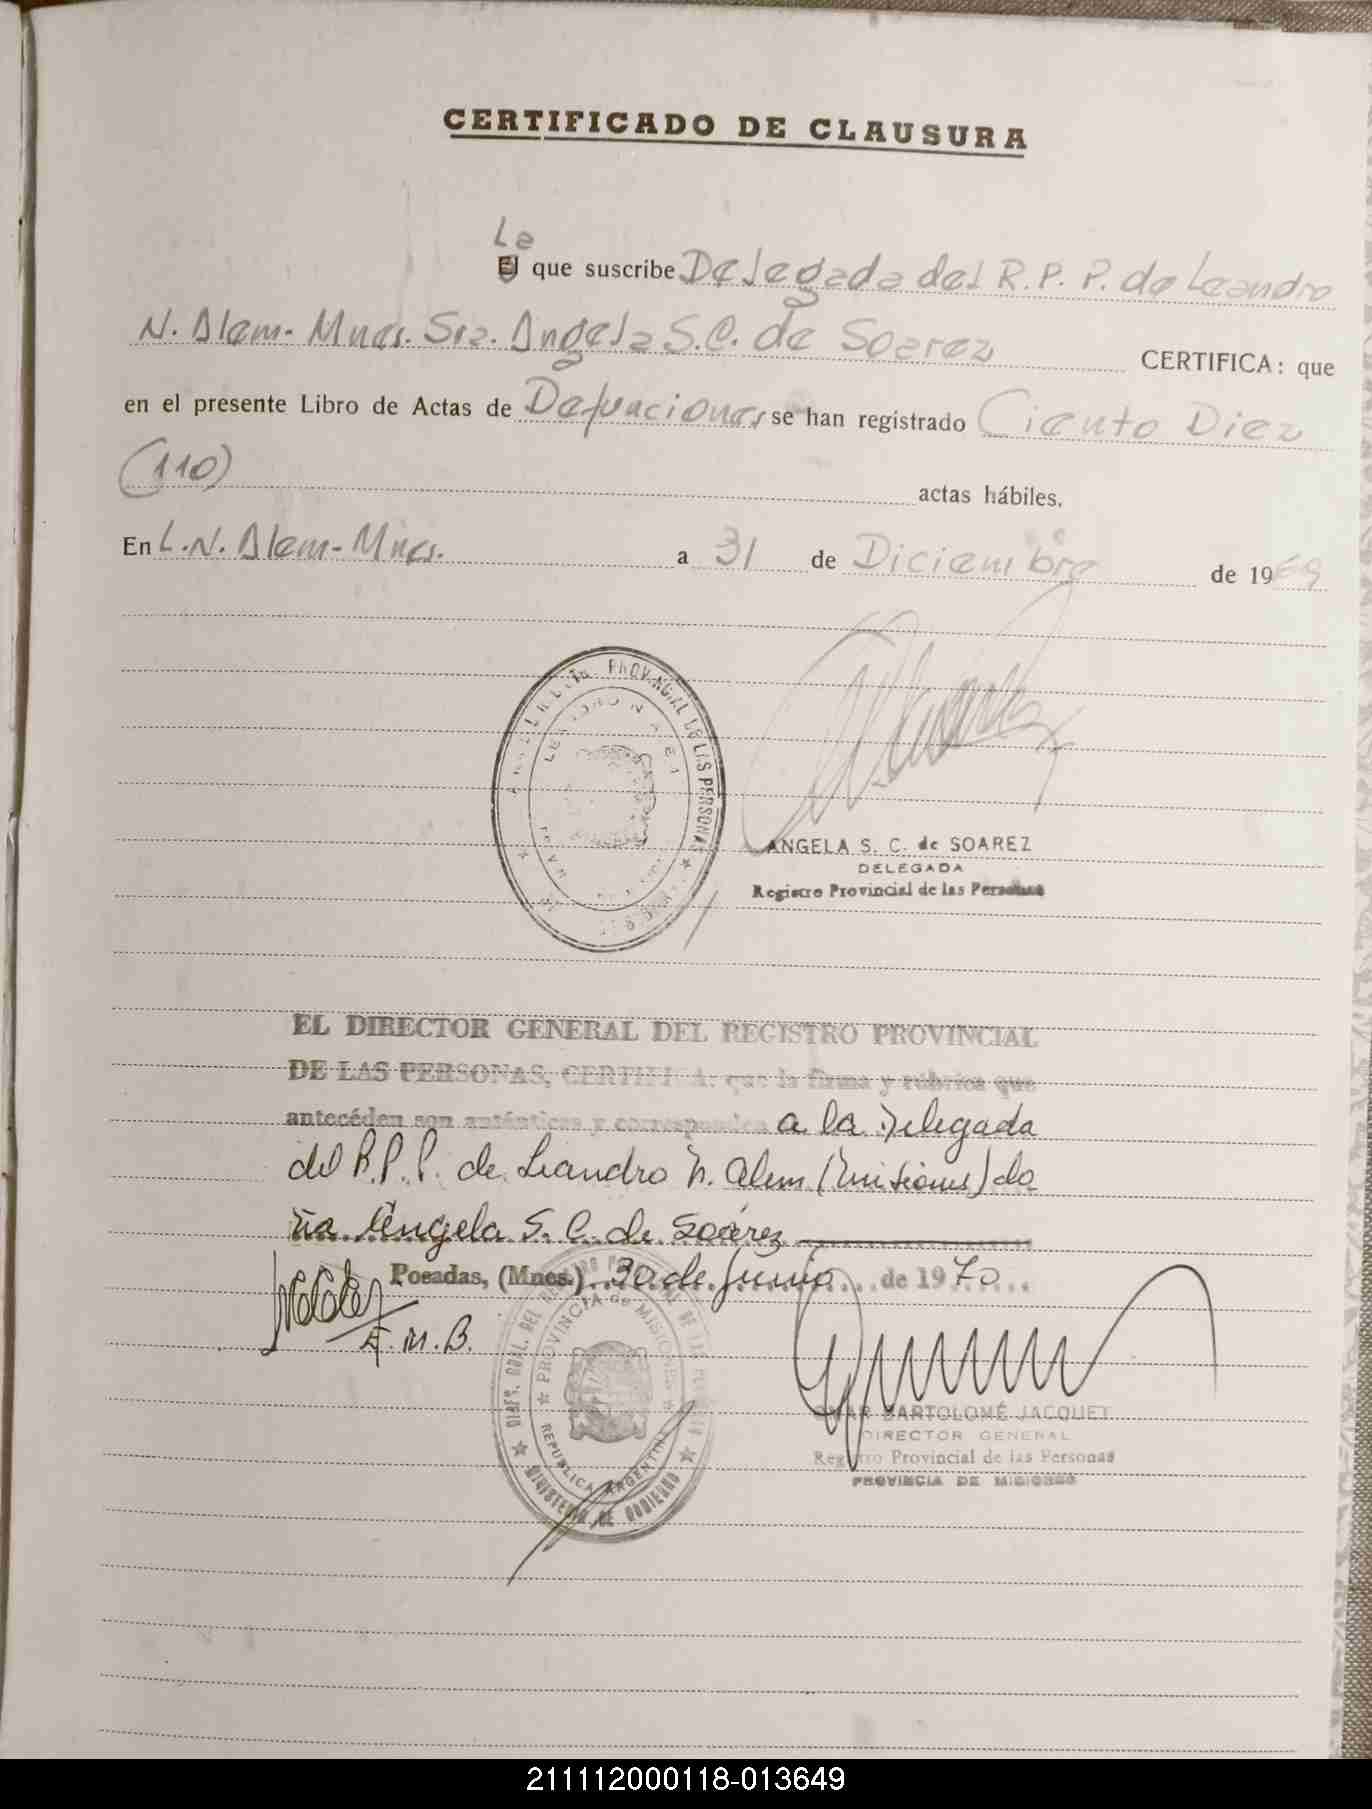 CERTIFICADO DE CLAUSURA
La
El que suscribe Delegada del R.P.P. de Leandro
N. Alem- Mnes. Sra. Angela S.C. de Soarez CERTIFICA: que
en el presente Libro de Actas de Defunciones se han registrado Ciento Diez
(110) actas hábiles.
En L.N. Alem- Mnes. a 31 de Diciembre de 1969
PROVINCIAL DE LAS PERSONAS
ANGELA S. C. de SOAREZ
DELEGADA
Registro Provincial de las Personas
EL DIRECTOR GENERAL DEL REGISTRO PROVINCIAL
DE LAS PERSONAS, CERTIFICA: que la firma y rúbrica que
antecéden son auténticas y corresponden a la Delegada
del R.P.P. de Leandro N. Alem (Misiones) do
ña Angela S. C. de Soárez
Posadas, (Mnes.) 30 de Junio de 1970
E.M.B.
PROVINCIA de MISIONES
REPUBLICA ARGENTINA
MINISTERIO DE GOBIERNO
OMAR BARTOLOMÉ JACQUET
DIRECTOR GENERAL
Registro Provincial de las Personas
PROVINCIA DE MISIONES
211112000118-013649